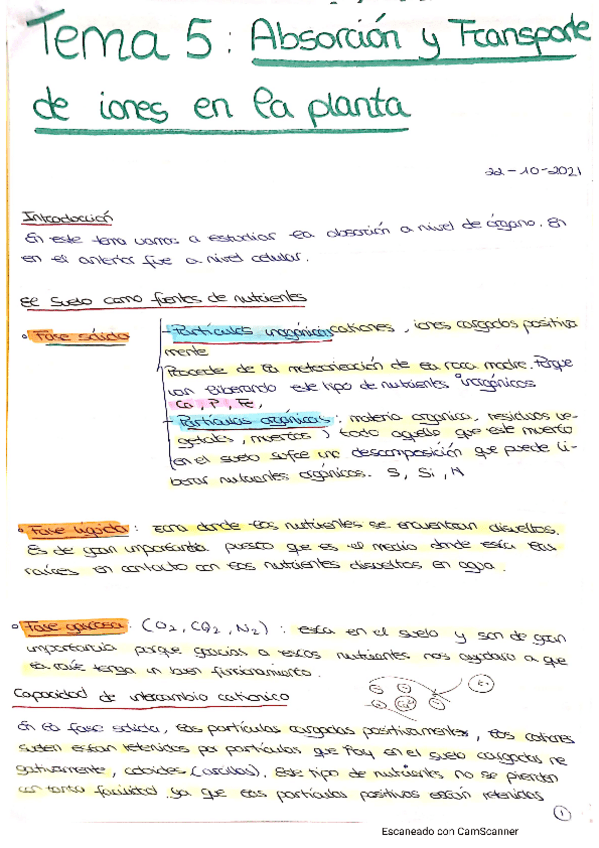 Tema 5: Absorción y Transporte
de iones en la planta
22-10-2021
Introducción
En este tema vamos a estudiar la absorción a nivel de órgano. En
en el anterior fue a nivel celular.
El suelo como fuentes de nutrientes
• Fase sólida
- Partículas inorgánicas cationes, iones cargados positiva
mente
Procede de la meteorización de la roca madre. Porque
van liberando este tipo de nutrientes inorgánicos
Ca, P, Fe,
- Partículas orgánicas: materia orgánica, residuos ve-
getales, muertos) todo aquello que este muerto
en el suelo sufre una descomposición que puede li-
berar nutrientes orgánicos. S, Si, N
• Fase líquida: zona donde los nutrientes se encuentran disueltos.
Es de gran importancia puesto que es el medio donde están las
raíces en contacto con los nutrientes disueltos en agua.
• Fase gaseosa: (O2, CO2, N2): esta en el suelo y son de gran
importancia porque gracias a estos nutrientes nos ayudará a que
la raíz tenga un buen funcionamiento.
Capacidad de intercambio cationico
En la fase solida, las partículas cargadas positivamente, los cationes
suelen estar retenidos por partículas que hay en el suelo cargadas ne
gativamente, coloides (arcillas). Este tipo de nutrientes no se pierden
con tanta facilidad ya que las partículas positivas están retenidas
1
Escaneado con CamScanner